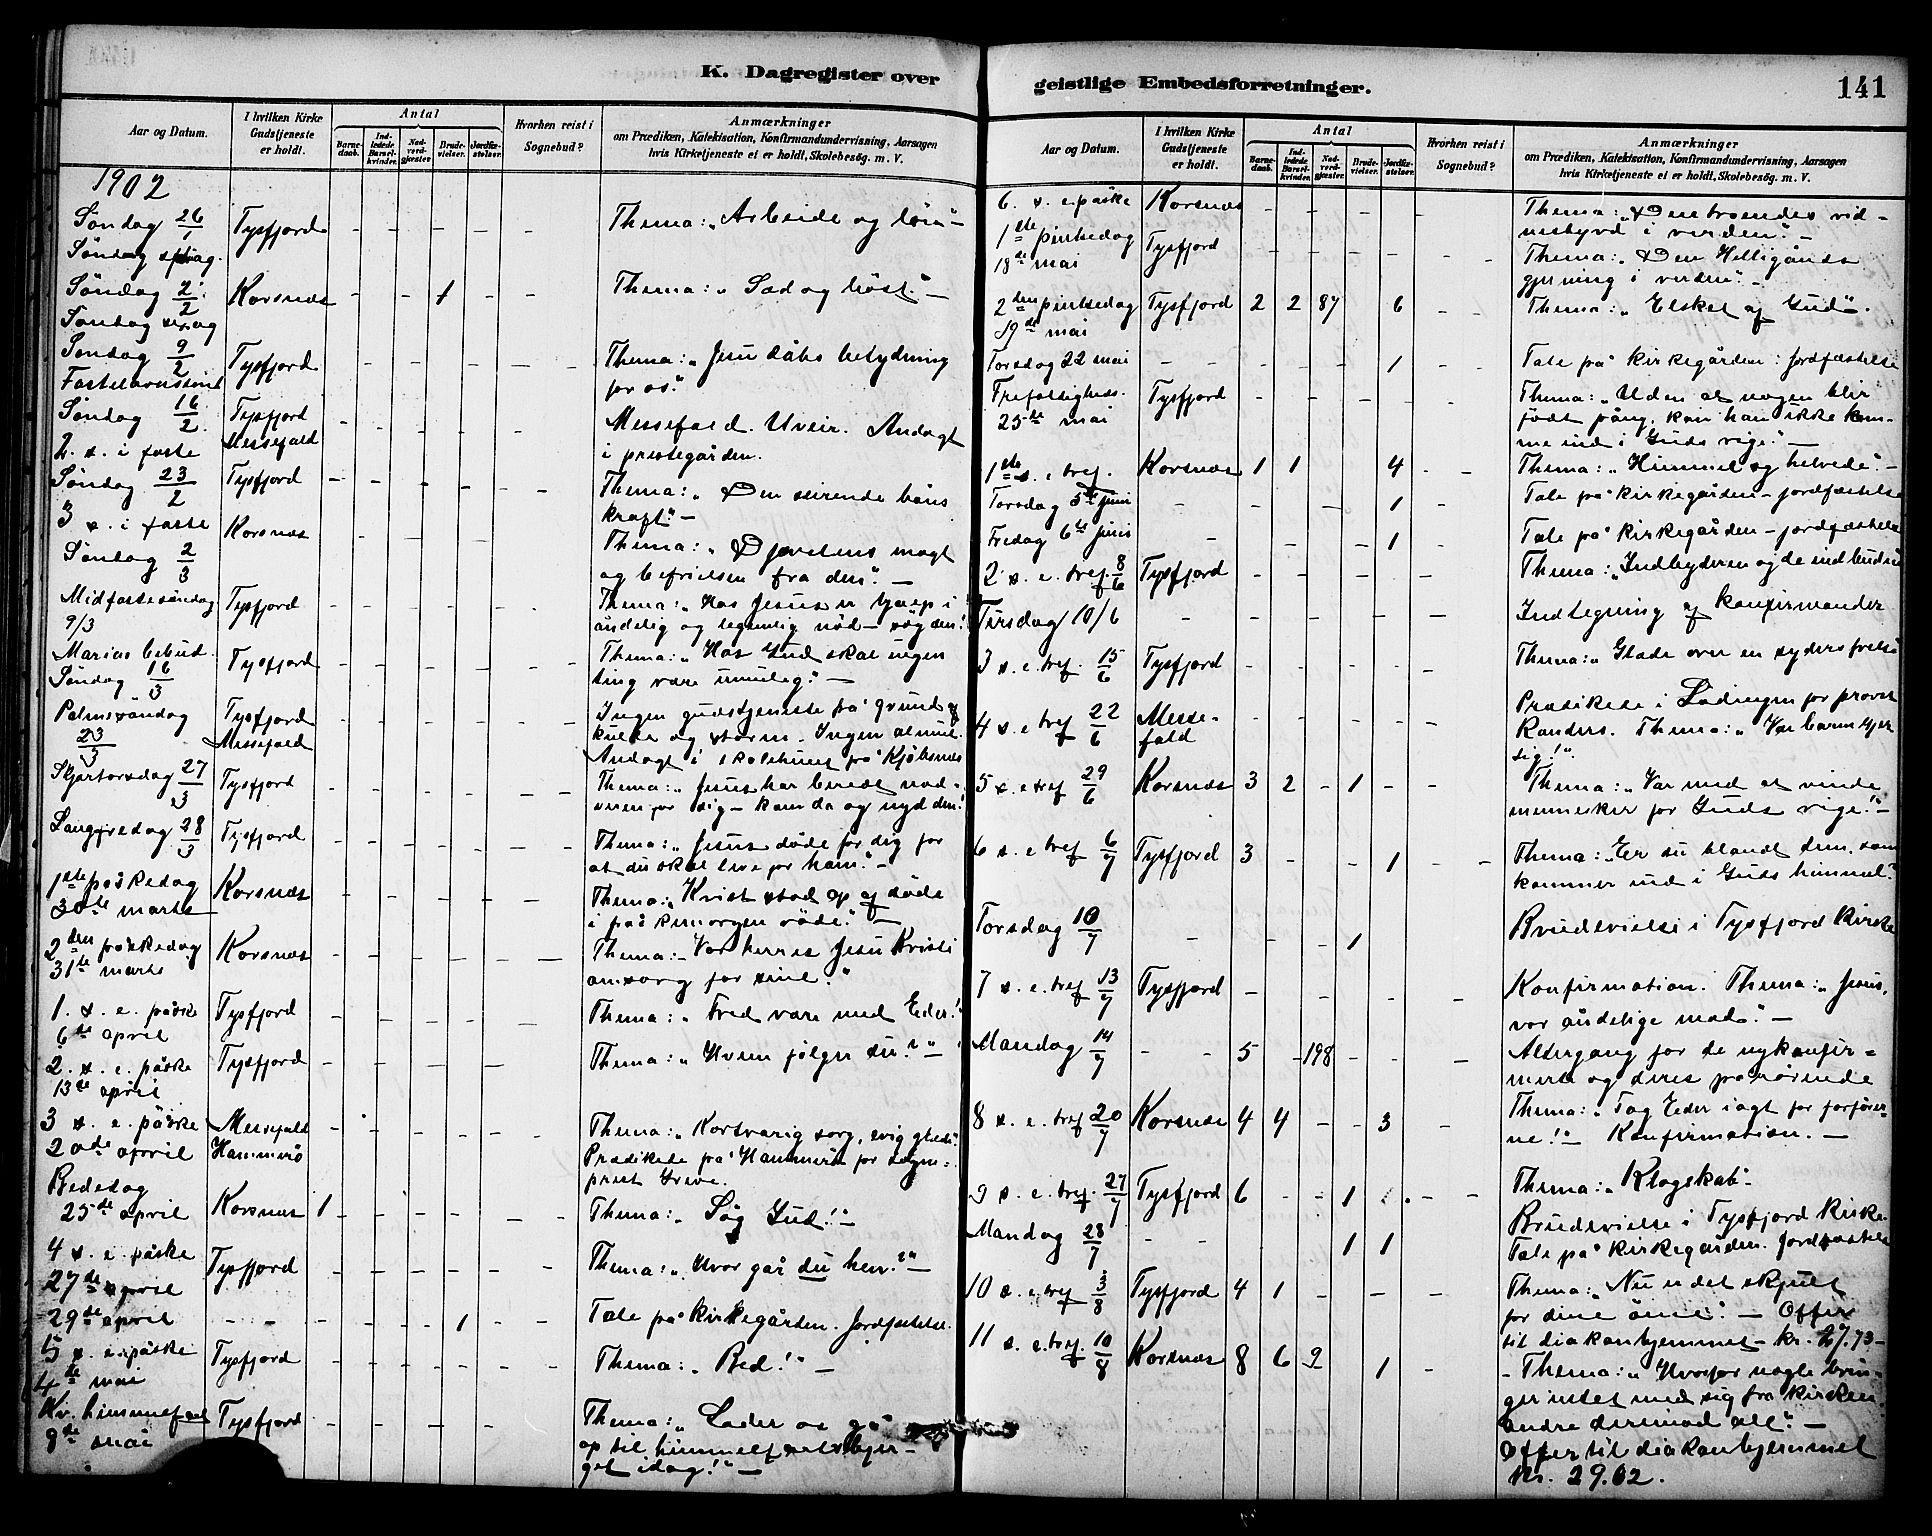 K. Dagregister over
Aar og Datum.
I hvilken Kirke Gudstjeneste er holdt.
Antal
Barne-daab.
Ind-ledede Barsel-kvinder.
Nad-verd-gjæster.
Brude-vielser.
Jordfæ-stelser.
Hvorhen reist i Sognebud?
Anmærkninger
om Prædiken, Katekisation, Konfirmandundervisning, Aarsagen
hvis Kirketjeneste ei er holdt, Skolebesøg. m. V.
1902
Søndag 26/1 Tysfjord - - - - - - Thema: „Arbeide og løn“ -
Søndag
Søndag 2/2 Korsnæs - - - 1 - - Thema: „Sæd og høst.“ -
Søndag
Søndag 9/2 Tysfjord Thema: „Jesu dåbs betydning
Fastelavnssønd for os.“
Søndag 16/2 Tysfjord Messefald. Uveir. Andagt
2. s. i faste Messefald i prestegården.
Søndag 23/2 Tysfjord - - - - - - Thema: „Den seirende bøns
3 s. i faste Korsnæs kraft.“ -
Søndag 2/3 Thema: „Djævelens magt
og befrielsen fra den.“ -
Midfastesøndag Tysfjord Thema: „Hos Jesus er hjælp i
9/3 åndelig og legemlig nød - søg den!
Mariæ bebud. Tysfjord Thema: „Hos Gud skal ingen
Søndag 16/3 ting være umulig.“ -
Palmesøndag Tysfjord Ingen gudstjeneste på grund af
23/3 Messefald kulde og storm. Ingen almue.
Andagt i skolehuset på Kjøbsnes
Skjærtorsdag 27/3 Tysfjord Thema: „Jesus har beredt nad-
veren for dig - kom da og nyd den!
Langfredag 28/3 Tysfjord Thema: „Jesus døde for dig for
at du skal leve for ham.“ -
1ste påskedag Korsnæs Thema: „Krist stod op af døde
30te marts i påskemorgen røde.“ -
2den påskedag Korsnæs Thema: „Vor herres Jesu Kristi
31te marts omsorg for sine.“
1. s. e. påske Tysfjord Thema: „Fred være med Eder!“
6te april
2. s. e. påske Tysfjord Thema: „Hvem følger du?“ -
13de april
3 s. e. påske Messefald Thema: „Kortvarig sorg, evig glæde“
20de april Hammerø Prædikede på Hammerø for sogne-
prest Greve.
Bededag
25de april Korsnæs 1 - - - - - - Thema: „Søg Gud!“ -
4 s. e. påske Tysfjord Thema: „Hvor går du hen?“ -
27de april
29de april - - - - - 1 - - Tale på kirkegården. Jordfæstelse.
5 s. e. påske Tysfjord Thema: „Bed!“ -
4de mai
Kr. himmelfart Tysfjord Thema: „Lader os gå
8de mai op til himmelfartsbjer-
get idag!“ -
geistlige Embedsforretninger.
141
Aar og Datum.
I hvilken Kirke Gudstjeneste er holdt.
Antal
Barne-daab.
Ind-ledede Barsel-kvinder.
Nad-verd-gjæster.
Brude-vielser.
Jordfæ-stelser.
Hvorhen reist i Sognebud?
Anmærkninger
om Prædiken, Katekisation, Konfirmandundervisning, Aarsagen
hvis Kirketjeneste ei er holdt, Skolebesøg. m. V.
6. s. e. påske Korsnæs - - - - Thema: „De troendes vid-
nesbyrd i verden.“ -
1ste pintsedag Tysfjord Thema: „Den Helligånds
18de mai gjerning i verden.“ -
2den pintsedag Tysfjord 2 2 87 6 - - Thema: „Elsket af Gud“.
19de mai
Torsdag 22 mai - - - - 1 - - Tale på kirkegården: Jordfæstelse
Trefoldigheds. Tysfjord Thema: „Uden at nogen blir
25de mai født påny, kan han ikke kom-
me ind i Guds rige.“ -
1ste s. e. tref. Korsnæs 1 1 4 - - Thema: „Himmel og helvede“ -
Torsdag 5te juni - - - 1 - Tale på kirkegården - jordfæstelse
Fredag 6te juni - - 1 - Tale på kirkegården - jordfæstelse
2 s. e. tref. 8/6 Tysfjord Thema: „Indbyderen og de indbudne
Tirsdag 10/6 - - - - - - Indtegning af konfirmander
3 s. e. tref 15/6 Tysfjord Thema: „Glæde over en synders frelse
4 s. e. tref 22/6 Messe- Prædikede i Lødingen for provst
fald Randers. Thema: „Vær barmhjer
tig!“
5 s. e tref 29/6 Korsnæs 3 2 - 1 - - Thema: „Vær med at vinde
mennesker for Guds rige!“ -
6 s. e tref 6/7 Tysfjord 3 - - 1 - - Thema: „Er du blandt dem, som
kommer ind i Guds himmel?
Torsdag 10/7 - - - 1 Brudevielse i Tysfjord kirke
7 s. e. tref 13/7 Tysfjord Konfirmation. Thema: „Jesus,
vor åndelige mad.“ -
Mandag 14/7 - - 5 - 198 - - - Altergang for de nykonfir-
merte og deres pårørende
8 s. e. tref 20/7 Korsnæs 4 4 - - 3 - - Thema: „Tag Eder iagt for forfører-
ne!“ - Konfirmation. -
9 s. e. tref. 27/7 Tysfjord 6 - - 1 - - Thema: „Klogskab“
Brudevielse i Tysfjord kirke.
Mandag 28/7 - - - 1 1 - Tale på kirkegården. Jordfæstelse
10 s. e. tref 3/8 Tysfjord 4 1 - - - - Thema: „Nu er det skjult
for dine øine.“ - Offer
til diakonhjemmet - kr. 27.73 -
11 s. e. tref. 10/8 Korsnæs 8 6 9 1 - - Thema: „Hvorfor nogle brin-
ger intet med sig fra kirken,
andre derimod alt.“ -
Offer til diakonhjemmet
Kr. 29.62.